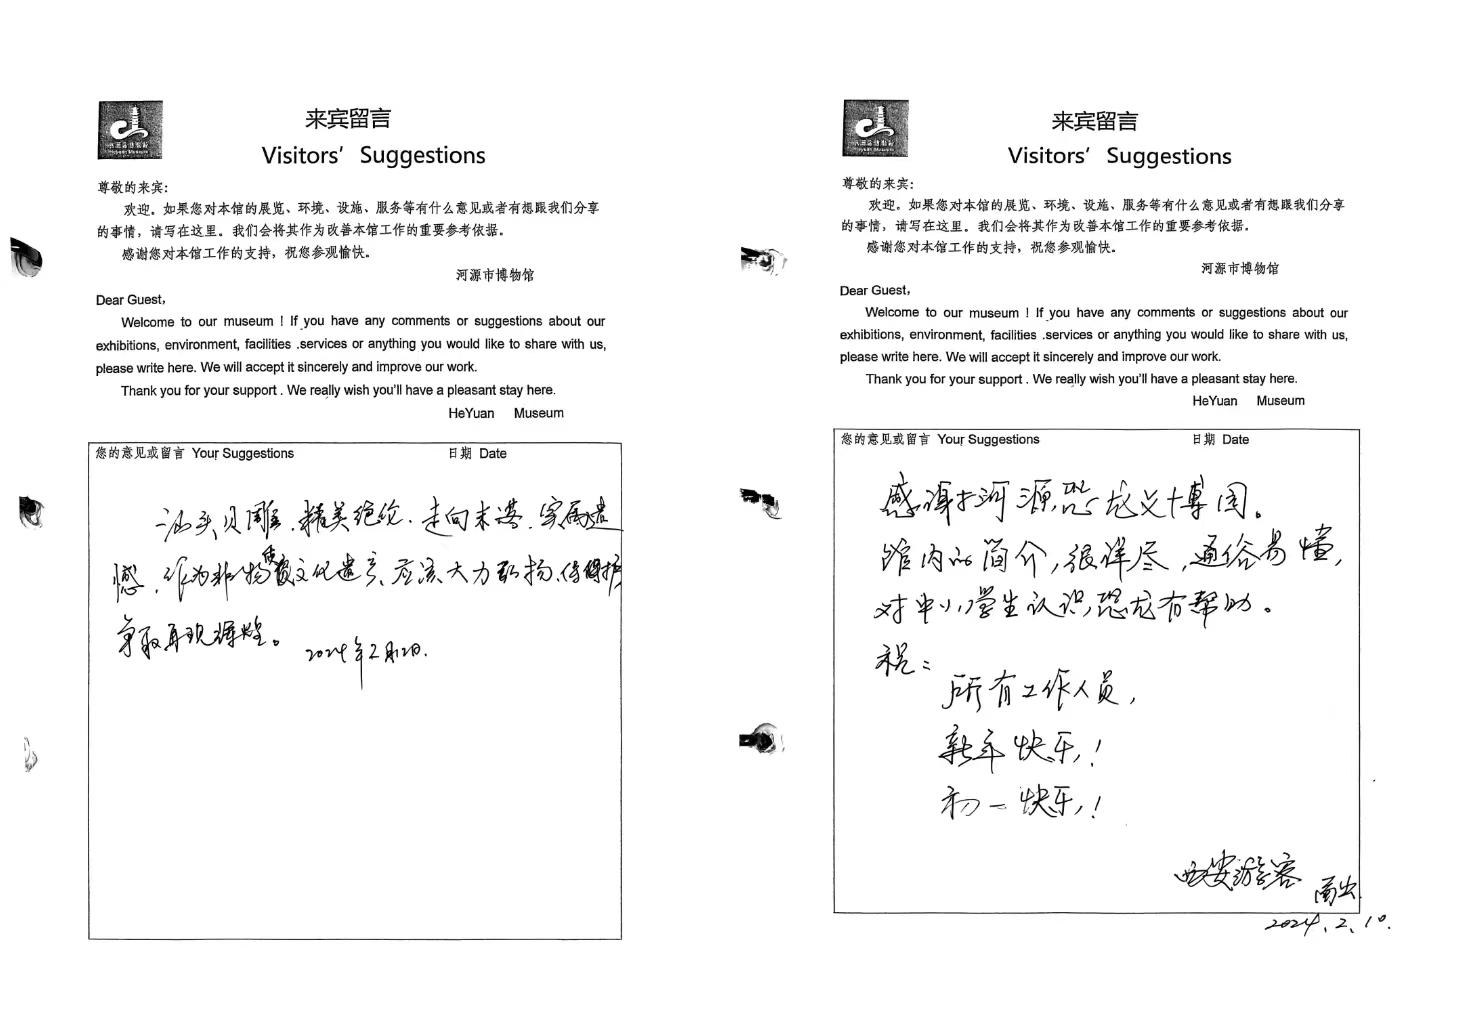 来宾留言
Visitors' Suggestions
尊敬的来宾:
欢迎。如果您对本馆的展览、环境、设施、服务等有什么意见或者有想跟我们分享
的事情，请写在这里。我们会将其作为改善本馆工作的重要参考依据。
感谢您对本馆工作的支持，祝您参观愉快。
河源市博物馆
Dear Guest,
Welcome to our museum ! If you have any comments or suggestions about our
exhibitions, environment, facilities .services or anything you would like to share with us,
please write here. We will accept it sincerely and improve our work.
Thank you for your support . We really wish you'll have a pleasant stay here.
HeYuan Museum
您的意见或留言 Your Suggestions 日期 Date
汕头贝雕、精美绝伦、走向末落、实属遗
憾，作为非物质文化遗产、应该大力弘扬、保护
争取再现辉煌。 2024年2月12日.
来宾留言
Visitors' Suggestions
尊敬的来宾:
欢迎。如果您对本馆的展览、环境、设施、服务等有什么意见或者有想跟我们分享
的事情，请写在这里。我们会将其作为改善本馆工作的重要参考依据。
感谢您对本馆工作的支持，祝您参观愉快。
河源市博物馆
Dear Guest,
Welcome to our museum ! If you have any comments or suggestions about our
exhibitions, environment, facilities .services or anything you would like to share with us,
please write here. We will accept it sincerely and improve our work.
Thank you for your support . We really wish you'll have a pleasant stay here.
HeYuan Museum
您的意见或留言 Your Suggestions 日期 Date
感谢河源恐龙博园。
馆内的简介，很详尽，通俗易懂，
对中小学生认识恐龙有帮助。
祝：
所有工作人员，
新年快乐！
初一快乐！
西安游客
2024.2.10.